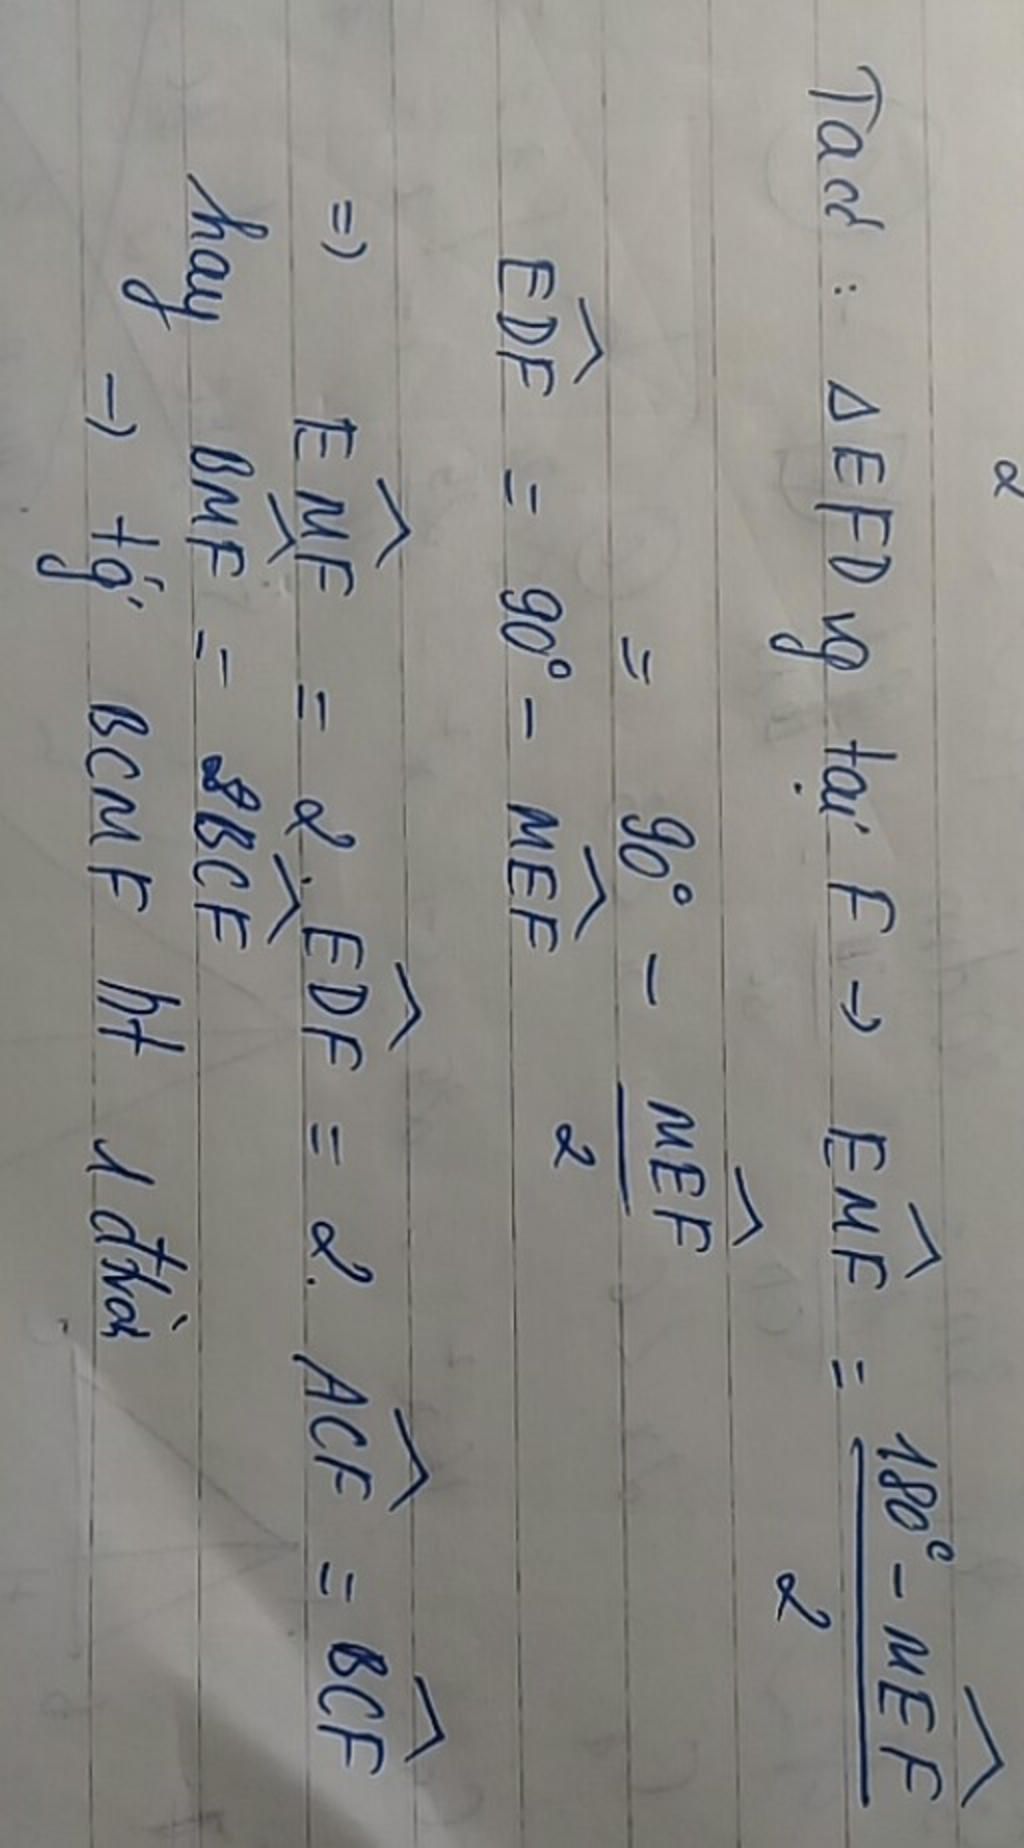 2
Ta có : ΔEFD vg tại F → \widehat{EMF} = \frac{180° - \widehat{MEF}}{2}
= 90° - \frac{\widehat{MEF}}{2}
\widehat{EDF} = 90° - \widehat{MEF}
=> \widehat{EMF} = 2.\widehat{EDF} = 2.\widehat{ACF} = \widehat{BCF}
hay \widehat{BMF} = \widehat{BCF}
→ tg BCMF nt 1 đtròn